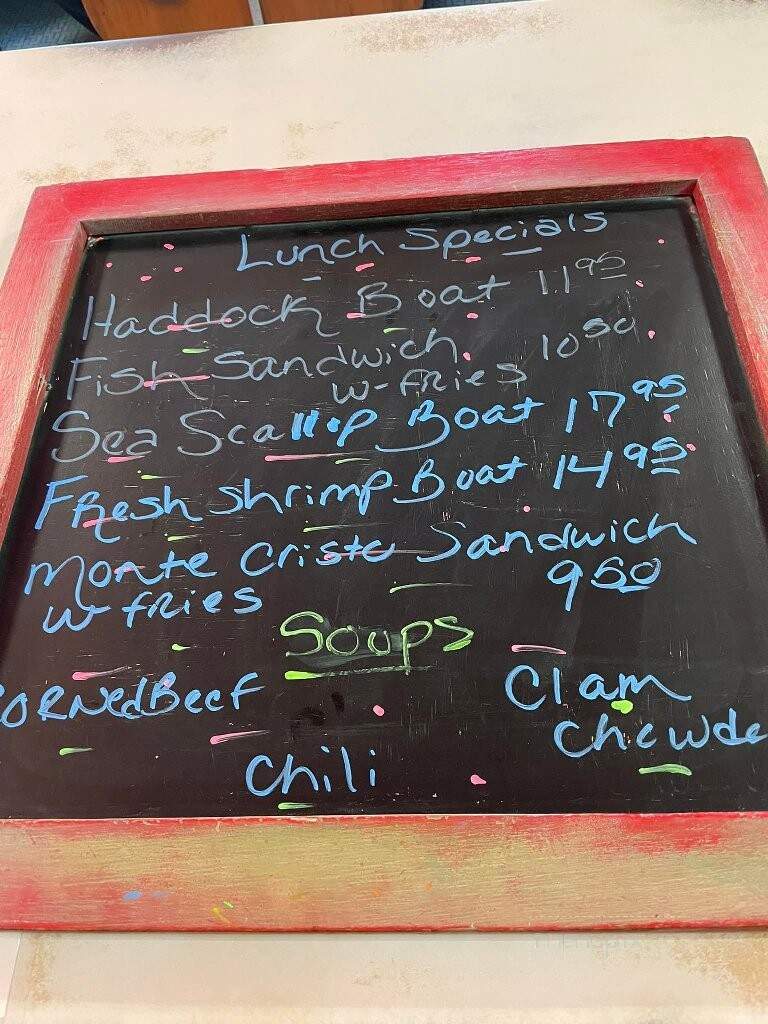 Lunch Specials
Haddock Boat 11 95
Fish Sandwich 10 50
w-fries
Sea Scallop Boat 17 95
Fresh Shrimp Boat 14 95
Monte Cristo Sandwich
w-fries 9 50
Soups
CORNed Beef Clam
Chowde
Chili